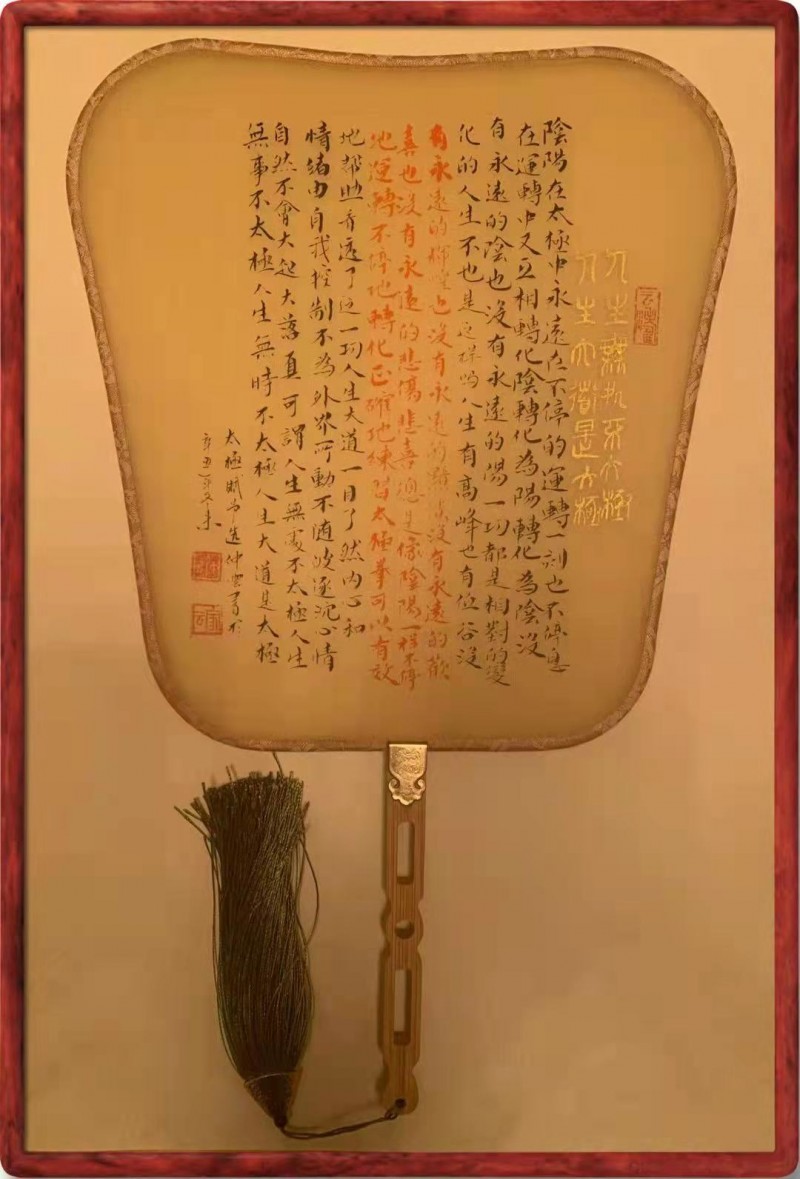 人生無処不太極
人生大道是太極
陰陽在太極中永遠在不停的運轉一刻也不停息
在運轉中又互相轉化陰轉化為陽陽轉化為陰沒
有永遠的陰也沒有永遠的陽一切都是相對的變
化的人生不也是這樣嗎人生有高峰也有低谷沒
有永遠的輝煌也沒有永遠的 沒有永遠的歡
喜也沒有永遠的悲傷悲喜總是像陰陽一樣不停
地運轉不停地轉化正確地練習太極拳可以有效
地幫助看透了這一切人生大道一目了然內心和
情緒由自我控制不為外界所動不隨波逐流心情
自然不會大起大落真可謂人生無處不太極人生
無事不太極人生無時不太極人生大道是太極
太極賦 仲 書於
辛丑年 末